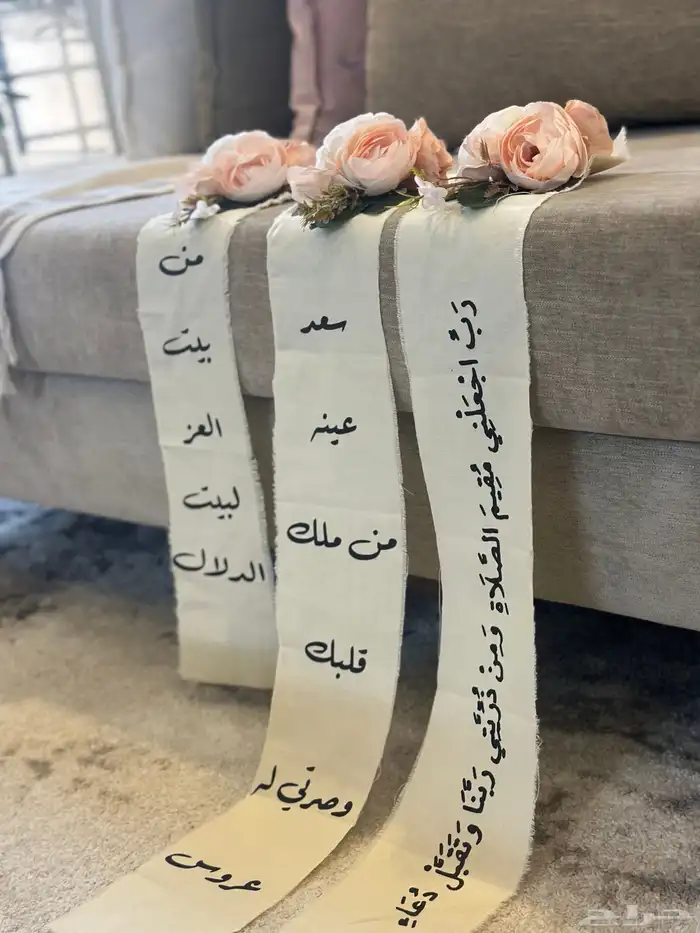 رَبِّ اجْعَلْنِي مُقِيمَ الصَّلَاةِ وَمِنْ ذُرِّيَّتِي رَبَّنَا وَتَقَبَّلْ دُعَاءِ
سعد
عينه
من ملك
قلبك
وصرتي له
عروس
من
بيت
العز
لبيت
الدلال
حراج